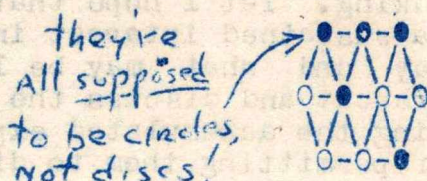 they're
All supposed
to be circles,
not discs!